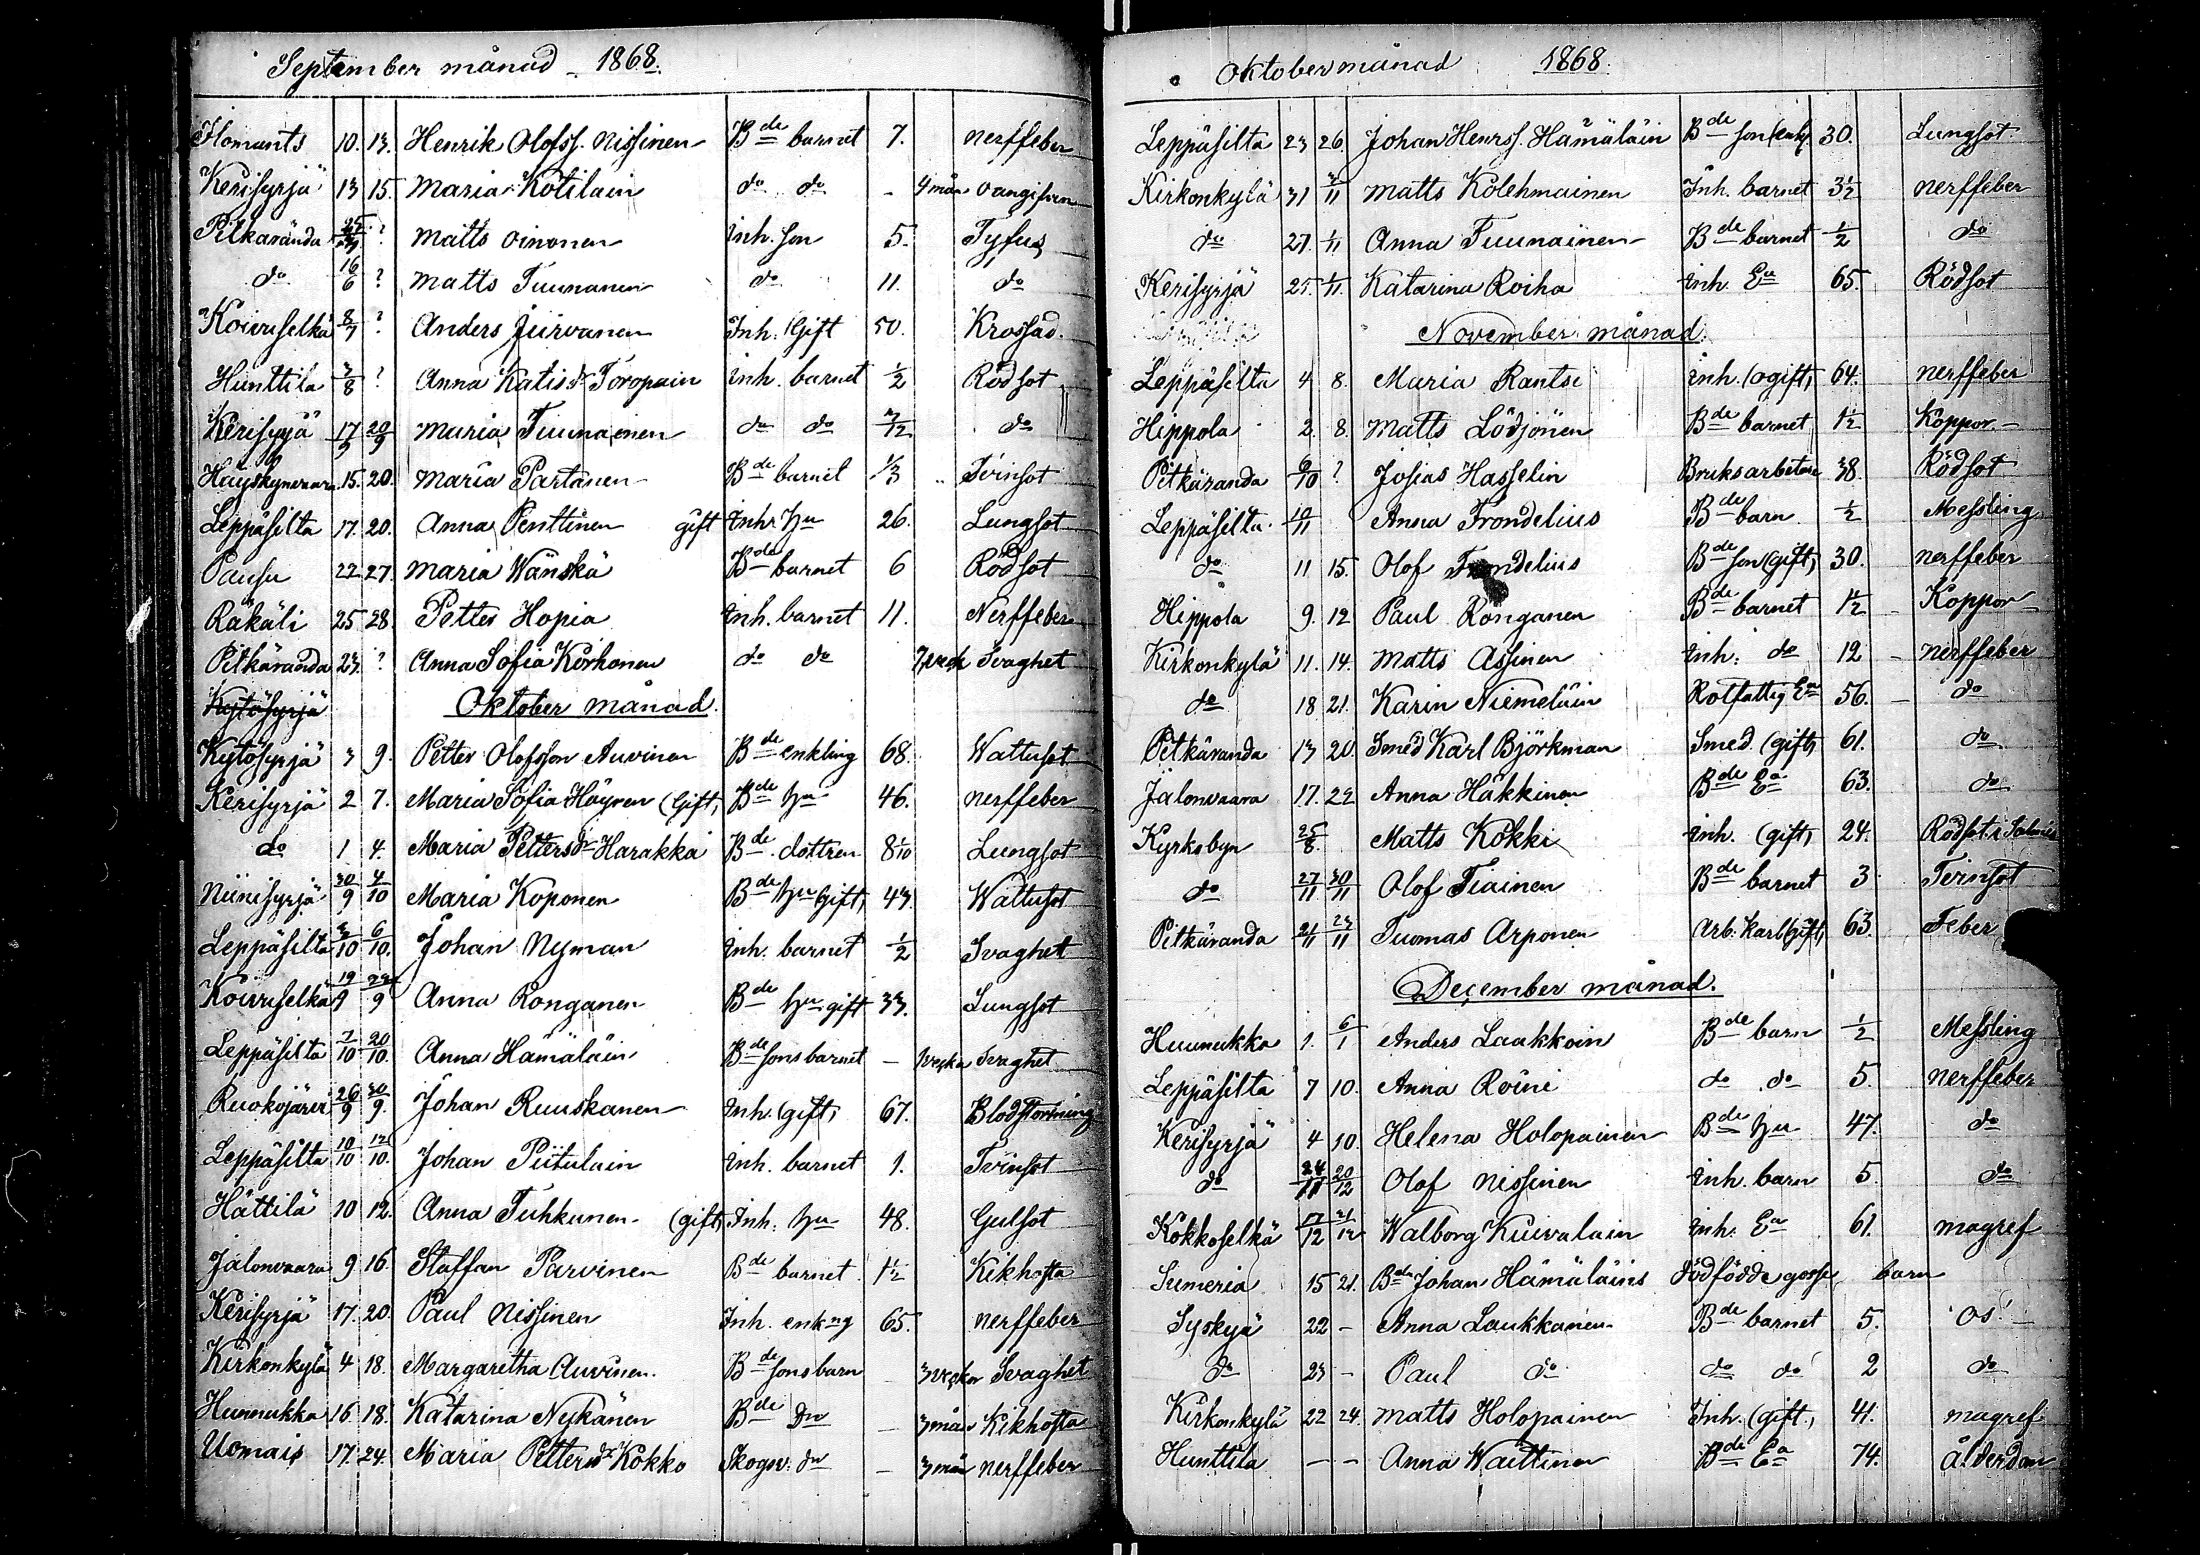 September månad - 1868.
Ilomants 10. 13. Henrik Olofss. Nissinen Bde barnet 7. nerffeber
Kerisyrjä 13 15. Maria Kotilain do do - 4 mån oangifven
Pitkäranda ? Matts Oinonen inh. son 5. Tyfus
do 16/6 ? Matts Tuunanen do 11. do
Koivuselkä 8/7 ? Anders Jürvanen Inh. Gift 50. Krossad.
Hunttila 3/8 ? Anna Katisdr Toropain inh. barnet 1/2 Rödsot
Kerisyrjä 17/9 20/9 Maria Tuunainen do do 7/12 do
Häyskynvaara 15. 20. Maria Partanen Bde barnet 1/3 Tvinsot
Leppäsilta 17. 20. Anna Penttinen gift Inhs hu 26. Lungsot
Pausu 22 27. Maria Wänskä Bde barnet 6 Rödsot
Räkäli 25 28. Petter Hopia inh. barnet 11. Nerffeber
Pitkäranda 23. ? Anna Sofia Korhonen do do 7 veck Svaghet
Kytösyrjä Oktober månad.
Kytösyrjä 3 9. Petter Olofsson Auvinen Bde enkling 68. Wattusot
Kerisyrjä 2 7. Maria Sofia Häyren (Gift) Bde hu 46. nerffeber
do 1 4. Maria Pettersdr Harakka Bde dottren 8 1/10 Lungsot
Niinisyrjä 30/9 4/10 Maria Koponen Bde hu (gift) 43. Wattusot
Leppäsilta 3/10 6/10. Johan Nyman inh. barnet 1/2 Svaghet
Koivuselkä 19/9 22/9 Anna Ronganen Bde hu gift 33. Lungsot
Leppäsilta 7/10 20/10. Anna Hämäläin Bde sons barnet - 1 vecka Svaghet
Ruokojärvi 26/9 30/9. Johan Ruuskanen Inh. (gift) 67. Blodstörtning
Leppäsilta 10/10 12/10. Johan Piitulain inh. barnet 1. Tvinsot
Hättilä 10 12. Anna Tuhkunen (gift) Inh. hu 48. Gulsot
Jalonvaara 9 16. Staffan Parvinen Bde barnet 1 1/2 Kikhosta
Kerisyrjä 17. 20. Paul Nissinen Inh. enkng 65. nerffeber
Kirkonkylä 4 18. Margaretha Auvinen. Bde sons barn 3 veckor Svaghet
Huunukka 16. 18. Katarina Nykänen Bde dr - 3 mån Kikhosta
Uomais 17. 24. Maria Pettersdr Kokko Skogsv. dr - 3 mån nerffeber
Oktober månad 1868.
Leppäsilta 23 26. Johan Henrss. Hämäläin Bde son 30. Lungsot
Kirkonkylä 31 3/11 Matts Kolehmainen Inh. barnet 3 1/2 nerffeber
do 27. 1/11 Anna Tuunainen Bde barnet 1/2 do
Kerisyrjä 25. 1/11. Katarina Roiha inh. Ea 65. Rödsot
November månad.
Leppäsilta 4 8. Maria Rantsi inh. (ogift) 64. nerffeber
Hippola 2. 8. Matts Lödjönen Bde barnet 1 1/2 Koppor. -
Pitkäranda 6/10 ? Josias Hasselin Bruksarbetare 38. Rödsot
Leppäsilta 10/11 Anna Trondelius Bde barn 1/2 Messling
do 11 15. Olof Trondelius Bde son (gift) 30. nerffeber
Hippola 9. 12 Paul Ronganen Bde barnet 1 1/2 - Koppor
Kirkonkylä 11. 14. Matts Assinen inh. do 12 - nerffeber
do 18 21. Karin Niemeläin Rotfattig Ea 56. - do
Pitkäranda 13 20. Smed Karl Björkman Smed. (gift) 61. do
Jalonvaara 17. 22 Anna Häkkinen Bde Ea 63. do
Kyrkobyn 25/8. Matts Kokki inh. (gift) 24. Rödsot i
do 27/11 30/11 Olof Tiainen Bde barnet 3 Tvinsot
Pitkäranda 21/11 23/11 Tuomas Arponen Arb. karl (gift) 63. Feber
December månad.
Huunukka 1. 6/1 Anders Laakkoin Bde barn 1/2 Messling
Leppäsilta 7 10. Anna Roini do do 5. nerffeber
Kerisyrjä 4 10. Helena Holopainen Bde hu 47. do
do 24/11 20/12 Olof Nissinen inh. barn 5. do
Kokkoselkä 17/12 21/12 Walborg Kuivalain inh. Ea 61. magref
Sumeria 15 21. Bde Johan Hämäläins dödfödde gosse barn
Syskyä 22 - Anna Laukkanen Bde barnet 5. os!
do 23 - Paul do do do 2 do
Kirkonkylä 22 24. Matts Holopainen Inh. (gift) 41. magref
Hunttila - - Anna Waittinen Bde Ea 74. Ålderdom